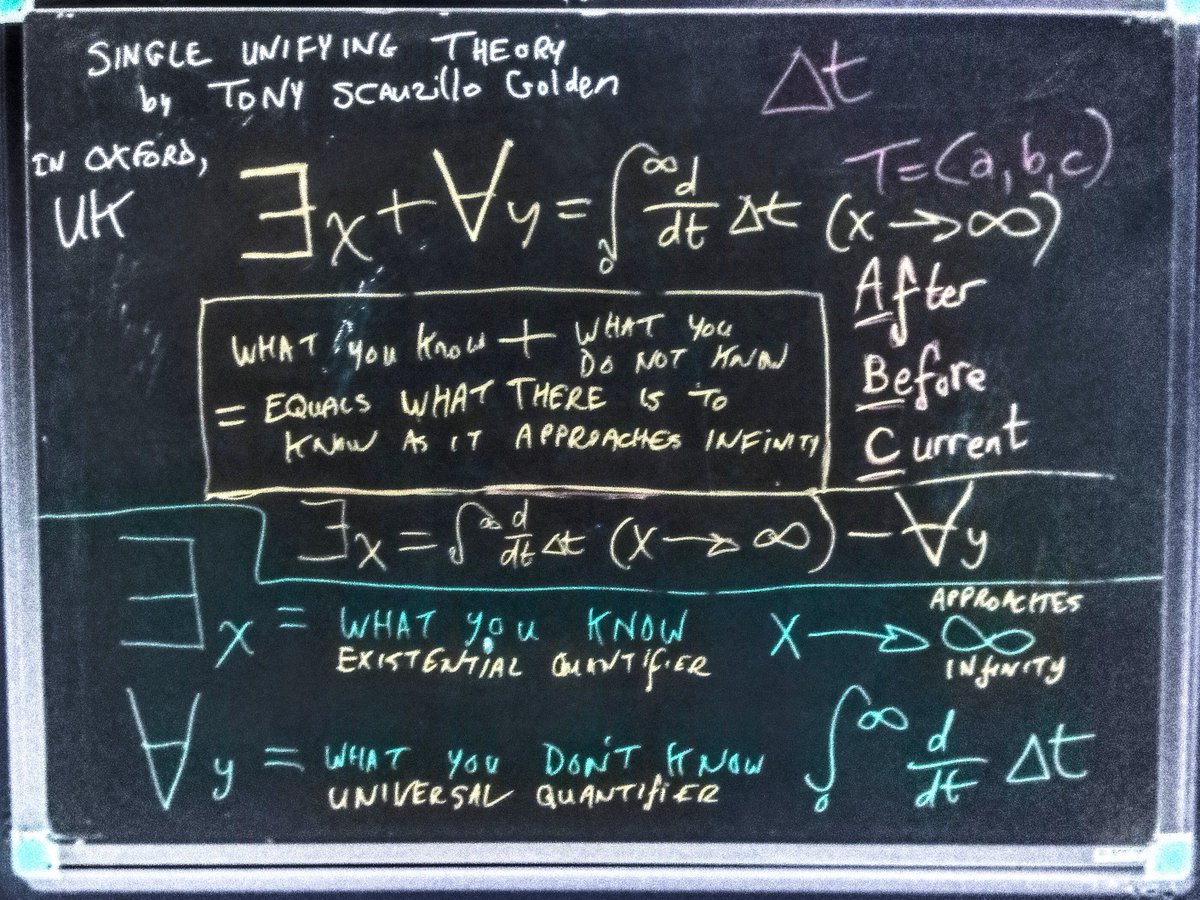 SINGLE UNIFYING THEORY
by TONY SCAUZILLO Golden
IN OXFORD,
UK
Δt
T=(a,b,c)
∃x + ∀y = ∫₀^∞ d/dt Δt (x → ∞)
After
Before
Current
WHAT you Know + WHAT you DO NOT KNOW
= EQUALS WHAT THERE IS TO
KNOW AS IT APPROACHES INFINITY
∃x = ∫₀^∞ d/dt Δt (X → ∞) − ∀y
∃x = WHAT you KNOW
EXISTENTIAL QUANTIFIER
X → ∞
APPROACHES
INFINITY
∀y = WHAT YOU DON'T KNOW
UNIVERSAL QUANTIFIER
∫₀^∞ d/dt Δt